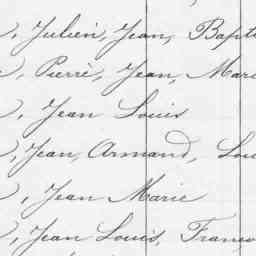 , Julien, Jean, Bapti
, Pierre, Jean, Mari
, Jean Louis
, Jean, Armand, Lou
, Jean Marie
, Jean Louis, Franço